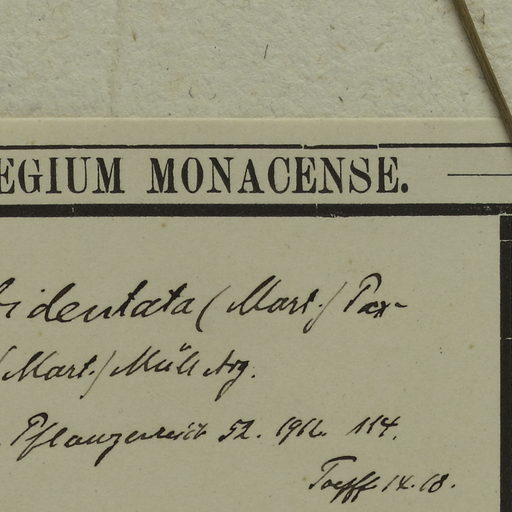 EGIUM MONACENSE.
bidentata (Mart.) Pax-
(Mart.) Müll Arg.
Pflanzenreich 52. 1912. 114.
IX. 18.